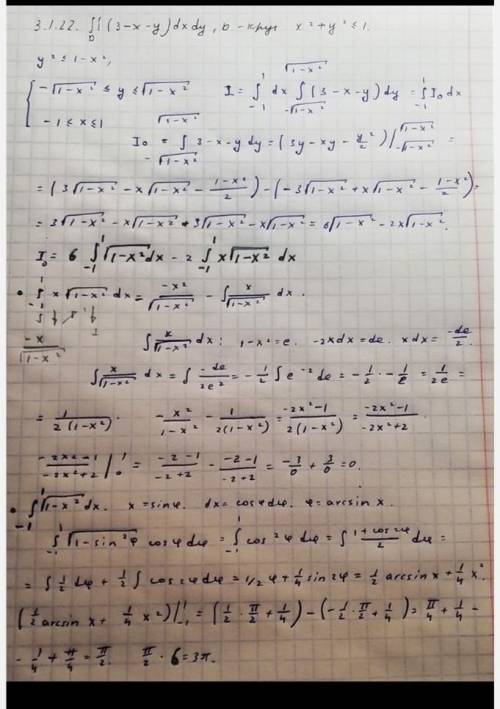 3.1.22. ∬_D (3-x-y) dx dy, D - круг x² + y² ≤ 1.
y² ≤ 1-x²,
{ -√(1-x²) ≤ y ≤ √(1-x²)   I = ∫_{-1}^{1} dx ∫_{-√(1-x²)}^{√(1-x²)} (3-x-y) dy = ∫_{-1}^{1} I₀ dx
-1 ≤ x ≤ 1
I₀ = ∫_{-√(1-x²)}^{√(1-x²)} 3-x-y dy = (3y - xy - y²/2) |_{-√(1-x²)}^{√(1-x²)} =
= (3√(1-x²) - x√(1-x²) - (1-x²)/2) - (-3√(1-x²) + x√(1-x²) - (1-x²)/2) =
= 3√(1-x²) - x√(1-x²) + 3√(1-x²) - x√(1-x²) = 6√(1-x²) - 2x√(1-x²).
I₀ = 6 ∫_{-1}^{1} √(1-x²) dx - 2 ∫_{-1}^{1} x√(1-x²) dx
• ∫_{-1}^{1} x√(1-x²) dx = -x²/√(1-x²) - ∫ x/√(1-x²) dx.
-x/√(1-x²)   ∫ x/√(1-x²) dx: 1-x² = e. -2xdx = de. xdx = -de/2.
∫ x/√(1-x²) dx = ∫ -de/2e² = -1/2 ∫ e⁻² de = -1/2 · -1/e = 1/2e =
= 1/2(1-x²).   -x²/(1-x²) - 1/2(1-x²) = (-2x²-1)/2(1-x²) = (-2x²-1)/(-2x²+2).
(-2x²-1)/(-2x²+2) |' = (-2-1)/(-2+2) - (-2-1)/(-2+2) = -3/0 + 3/0 = 0.
• ∫_{-1}^{1} √(1-x²) dx. x = sinφ. dx = cosφ dφ. φ = arcsin x.
∫_{-1}^{1} √(1-sin²φ) cosφ dφ = ∫_{-1}^{1} cos²φ dφ = ∫ (1+cos2φ)/2 dφ =
= ∫ 1/2 dφ + 1/2 ∫ cos2φ dφ = 1/2 φ + 1/4 sin2φ = 1/2 arcsin x + 1/4 x².
(1/2 arcsin x + 1/4 x²) |_{-1}^{1} = (1/2 · π/2 + 1/4) - (-1/2 · π/2 + 1/4) = π/4 + 1/4 -
- 1/4 + π/4 = π/2.   π/2 · 6 = 3π.